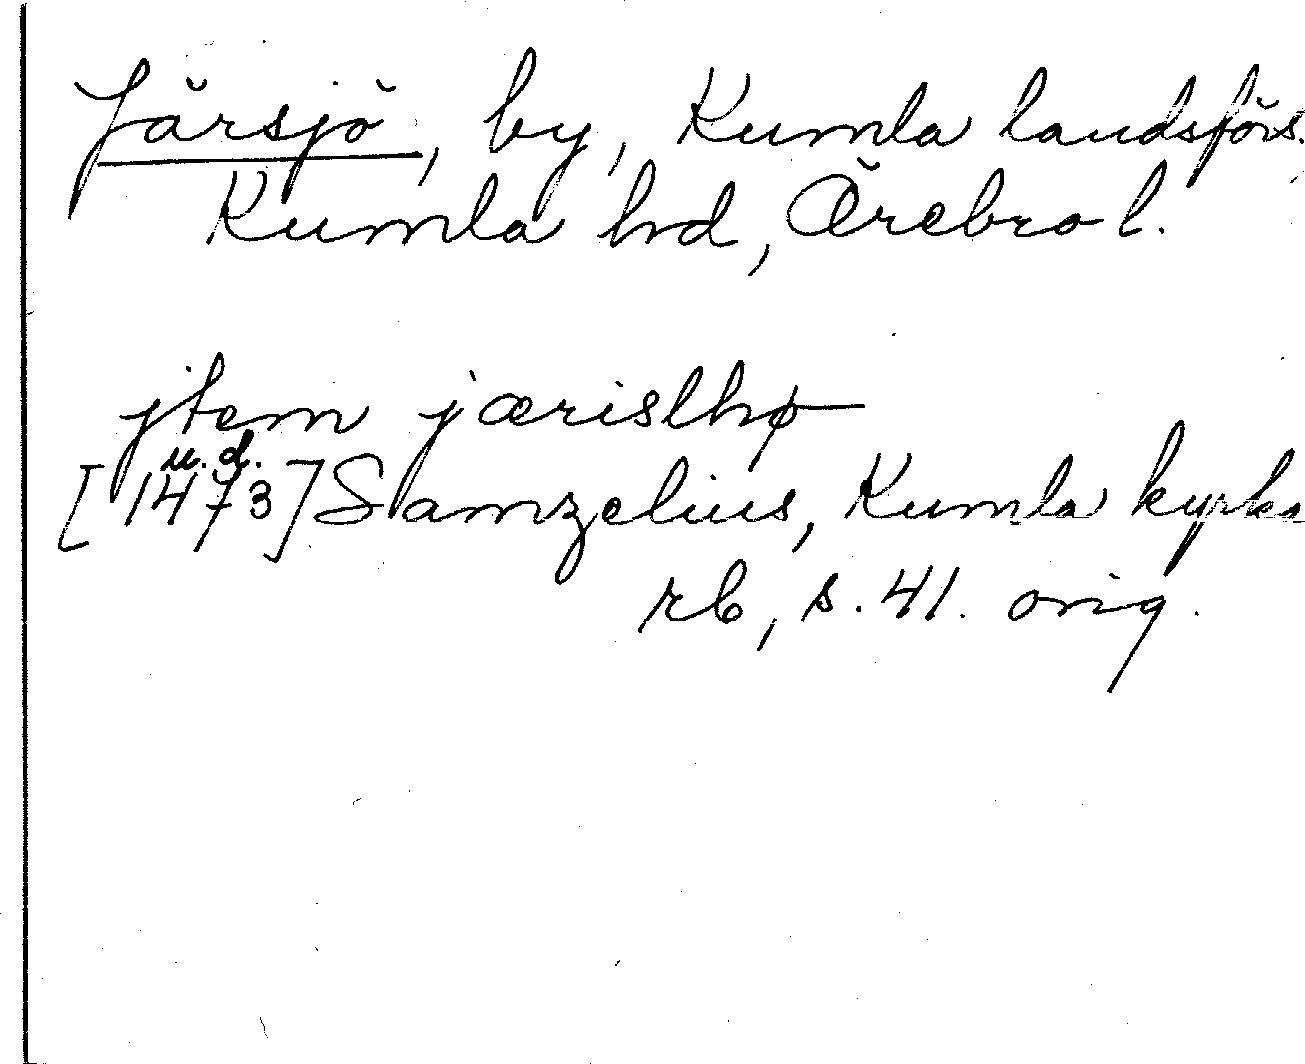 Järsjö, by, Kumla landsförs.
Kumla hd, Örebro l.
jtem jærislhø
u.d.
[1473] Samzelius, Kumla kyrka
rb, s. 41. orig.